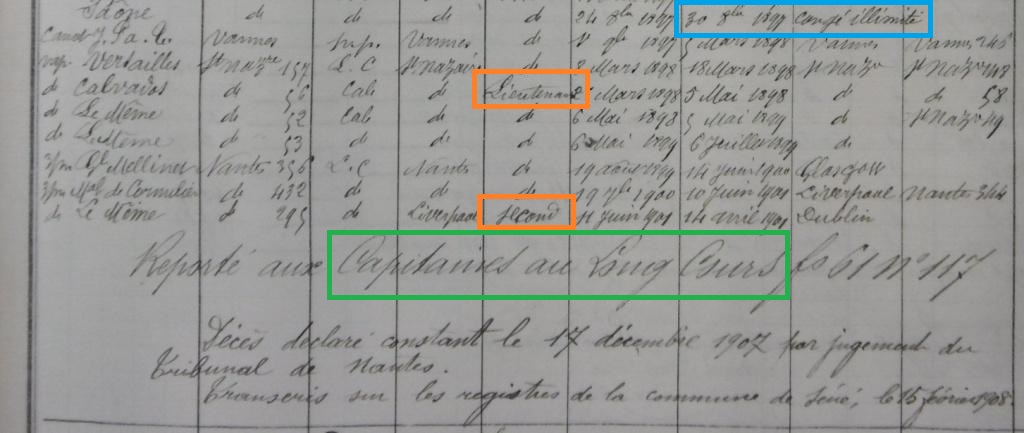 Saône de de de 24 8bre 1897 30 8bre 1897 congé illimité
Vannes Vannes de 1898 Vannes Vannes
Versailles St Naz 157 L. C St Nazaire de 2 Mars 1898 18 Mars 1898 St Naz St Naz
de Calvados de 56 Cab de Lieutenant Mars 1898 5 Mai 1898 de de 58
de Le Même de 52 Cab de de 6 Mai 1898 5 Mai 1899 de St Naz 49
de Le Même de 53 de de de 6 Mai 1899 6 Juillet 1899 de
3m Gal Mellinet Nantes 356 L. C Nantes de 19 août 1899 14 juin 1900 Glasgow
3m de Cornulier de 432 de de de 19 7bre 1900 10 Juin 1901 Liverpool Nantes 344
de Le Même de 295 de Liverpool second 11 juin 1901 14 avril 1901 Dublin
Reporté aux Capitaines au Long Cours fo 61 no 117
Décès déclaré constant le 17 décembre 1907 par jugement du
Tribunal de Nantes.
Transcris sur les registres de la commune de Séné, le 15 février 1908.